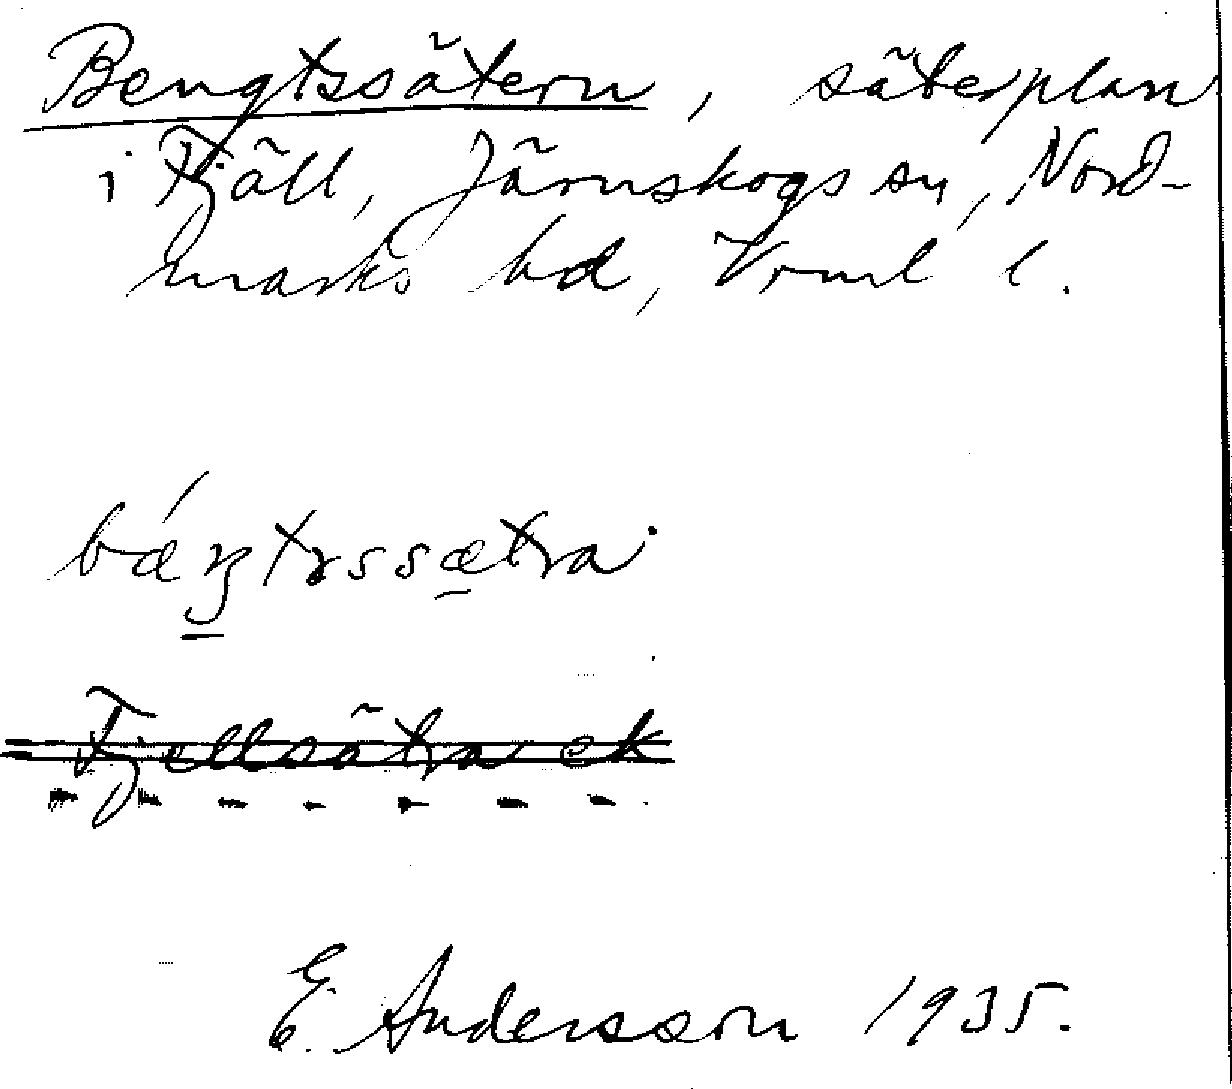 Bengtssätern, säterplan
i Fjäll, Järnskogs sn, Nord-
marks hd, Vrml l.
Fjellsätra ek
E. Andersson 1935.